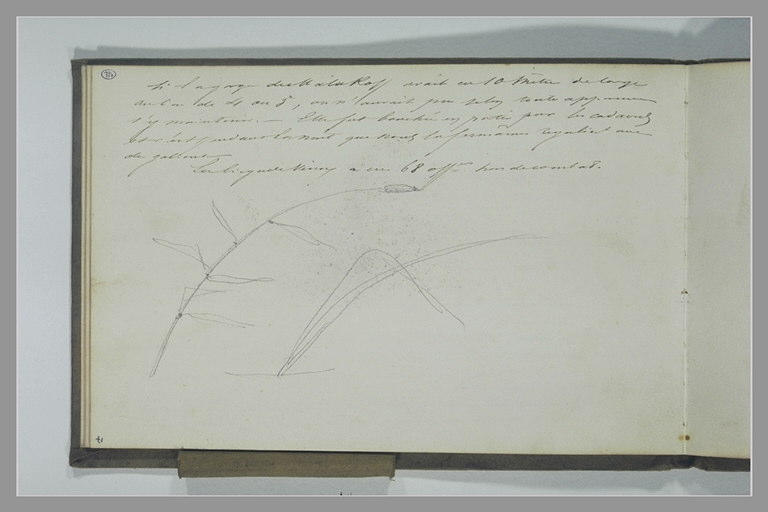 Si la gorge de Malakoff avait eu 10 mètres de large
au lieu de 4 ou 5, on n'aurait pu selon toute apparence
s'y maintenir. — Elle fut bouchée en partie par les cadavres
et c'est pendant la nuit que nous la fermâmes avec
de gabions
La brigade Vinoy a eu 68 off. hors de combat.